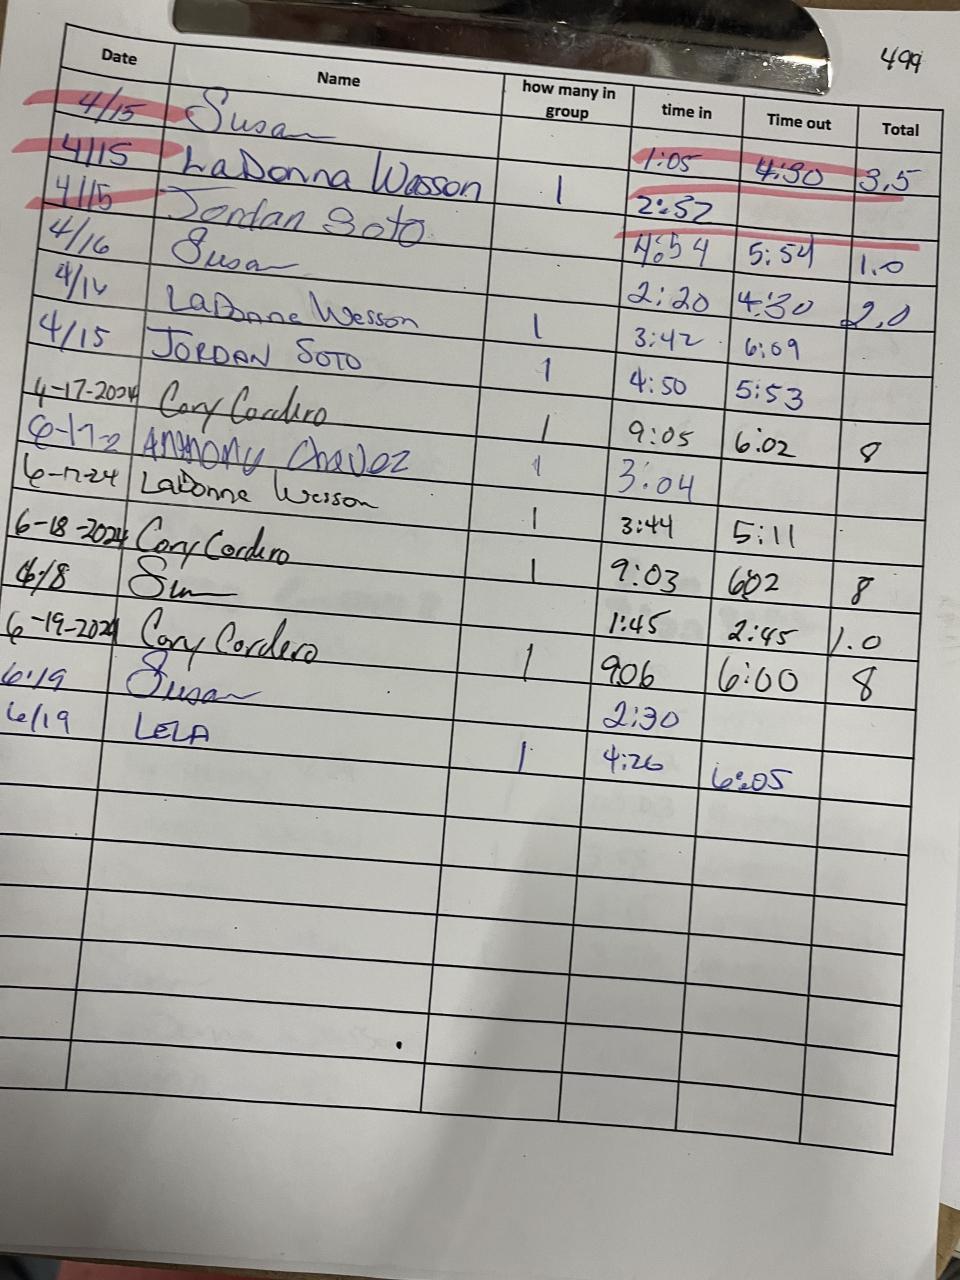 499
Date Name how many in group time in Time out Total
4/15 Susan 1:05 4:30 3.5
4/15 LaDonna Wasson 1 2:57
4/15 Jordan Soto 4:54 5:54 1.0
4/16 Susan 2:20 4:30 2.0
4/16 LaDonna Wesson 1 3:42 6:09
4/15 JORDAN SOTO 1 4:50 5:53
4-17-2024 Cory Cordero 1 9:05 6:02 8
6-17-2 ANTHONY Chavez 1 3:04
6-17-24 LaDonna Wesson 1 3:44 5:11
6-18-2024 Cory Cordero 1 9:03 602 8
6/18 1:45 2:45 1.0
6-19-2024 Cory Cordero 1 906 6:00 8
6/19 Susan 2:30
6/19 LELA 1 4:26 6:05